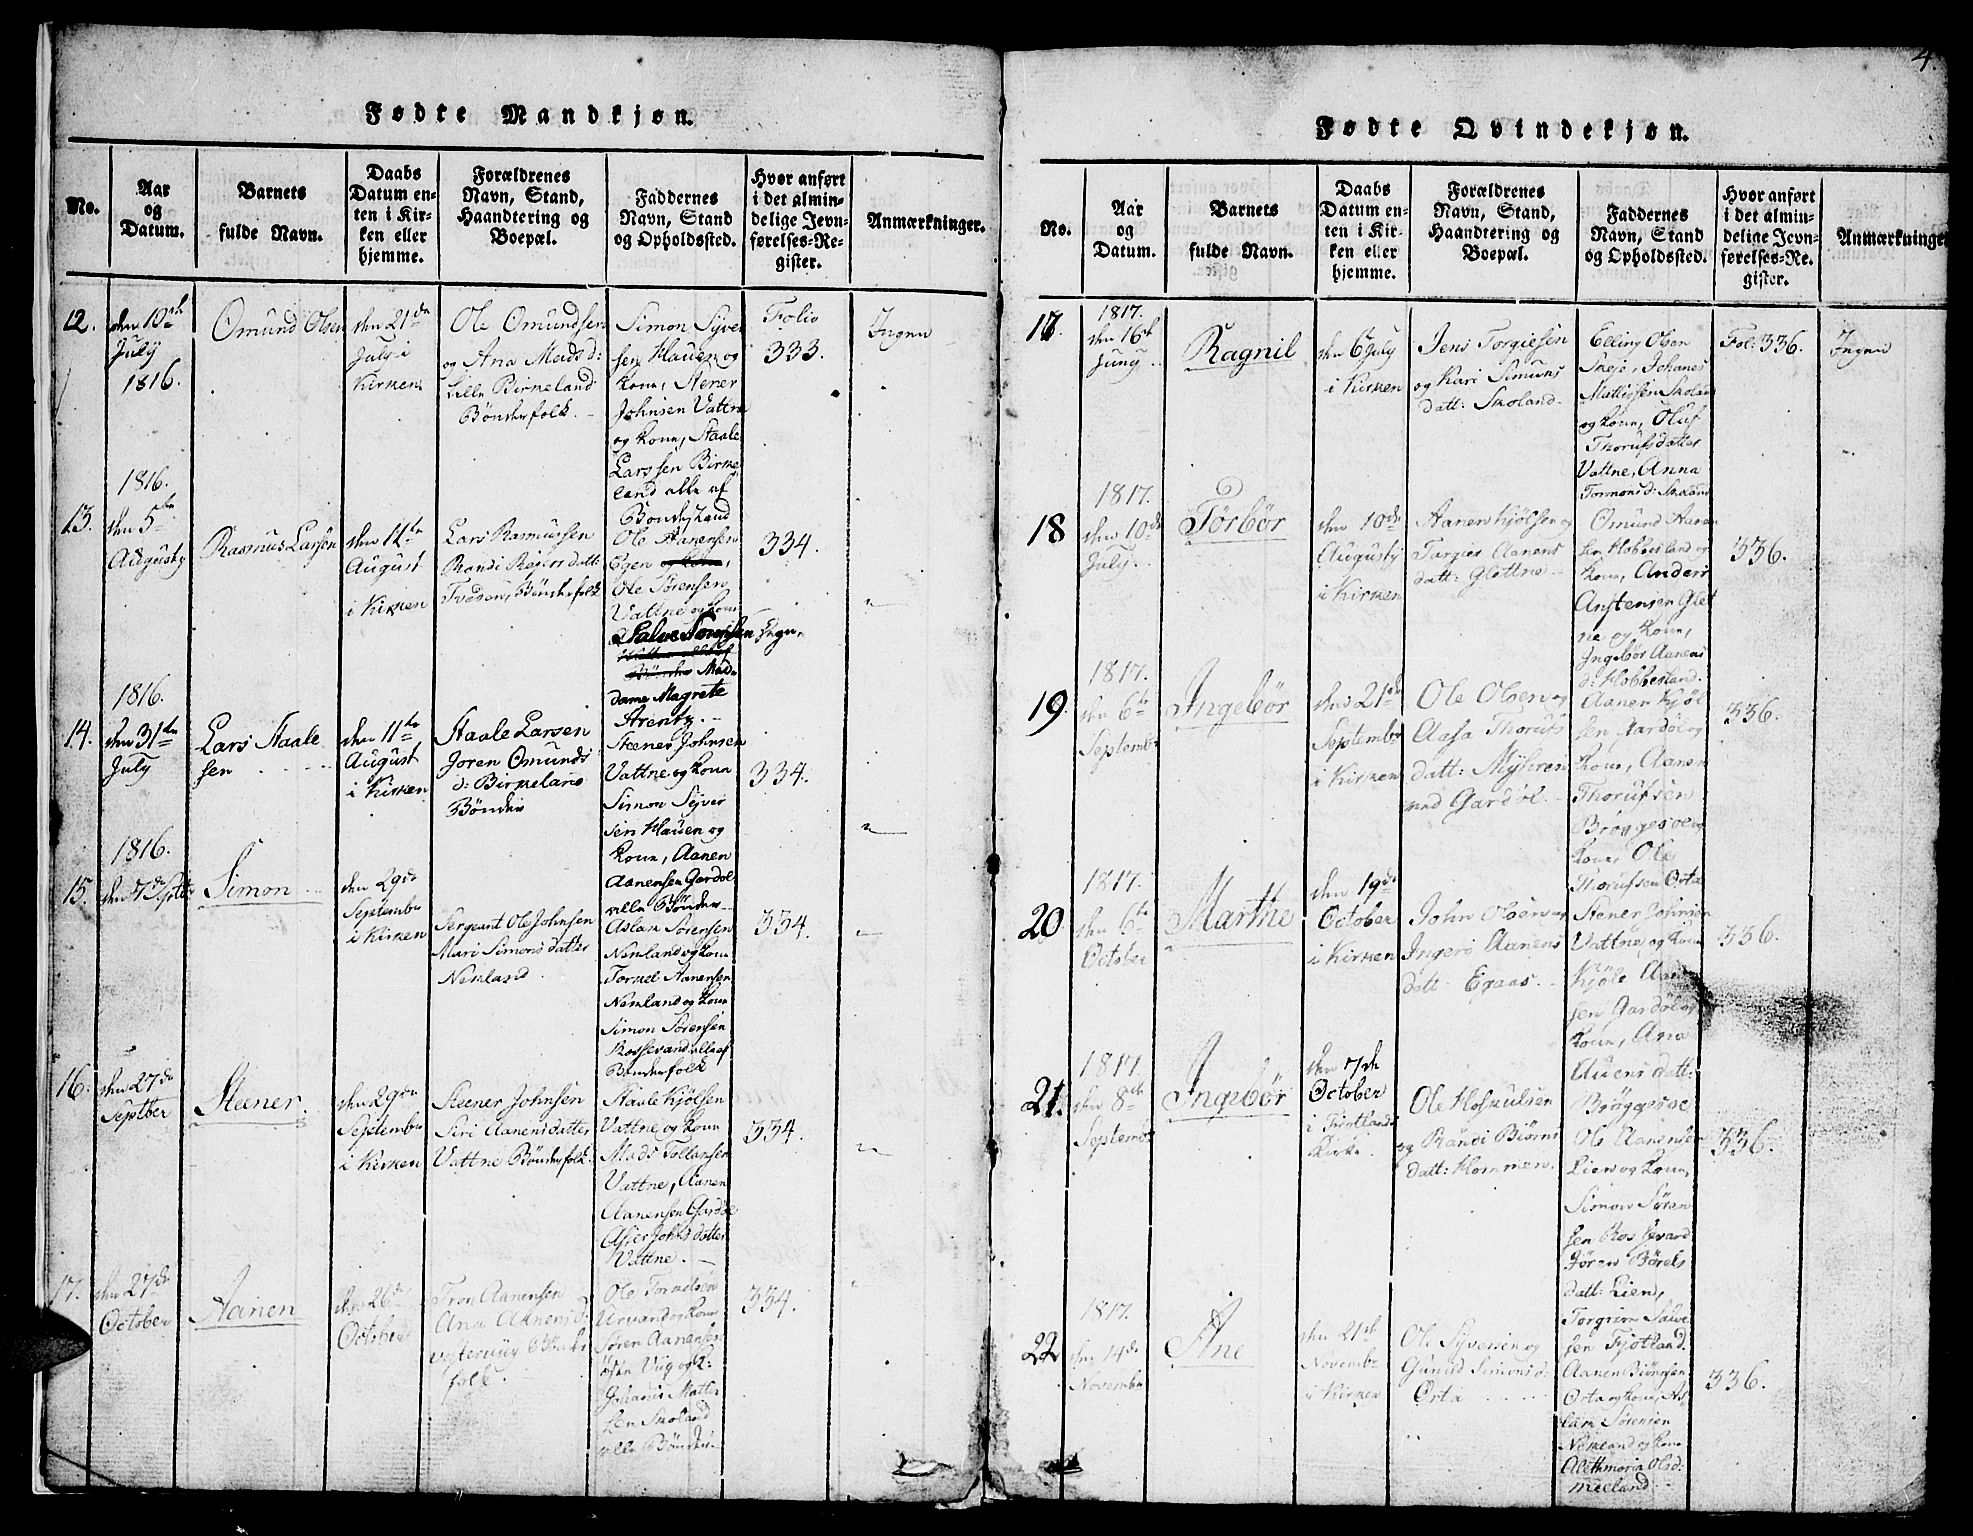 4.
Fødte Mandkjøn.
No.
Aar
og
Datum.
Barnets
fulde Navn.
Daabs
Datum en-
ten i Kir-
ken eller
hjemme.
Forældrenes
Navn, Stand,
Haandtering og
Boepæl.
Faddernes
Navn, Stand
og Opholdssted.
Hvor anført
i det almin-
delige Jevn-
førelses-Re-
gister.
Anmærkninger.
12.
den 19de
July
1816.
Omund Olsen
den 21de
July i
Kirken
Ole Omundsen
og Ana Mads d:
Lille Birkeland
Bønderfolk.
Simon Syver
sen Hauen og
Kone, Stener
Johnsen Vattne
og Kone, Staale
Larssen Birke
land alle af
Bondestand
Folio
333.
Ingen
1816.
13.
den 5te
Augusty
Rasmus Larsen
den 11te
August
i Kirken
Lars Rasmussen
Randi Reiers datt:
Tveden, Bønderfolk
Ole Aanensen
Egen og Kone,
Ole Sørensen
Vattne og Kone
Salve Sørensen
Mad-
dame Magrete
Arentz.
334.
1816.
14.
den 31te
July
Lars Staale
sen
den 11te
August
i Kirken
Staale Larsen
Joren Omunds
d: Birkeland
Bønder
Steener Johnsen
Vattne og Kone
Simon Syver
sen Hauen og
Kone, Aanen
Aanensen Gardøl
alle Bønder
334.
1816.
15.
den 7de Septbr
Simon
den 29de
Septembr
i Kirken
Sergeant Ole Johnsen
Mari Simons datter
Nemland
Aslak Sørensen
Nemland og Kone
Tormel Aanensen
Nemland og Kone
Simon Sørensen
Rossevand alle af
Bønderfolk
334.
16.
den 27de
Septber
Steener.
den 29de
Septembr
i Kirken
Steener Johnsen
Siri Aanens datter
Vattne Bønderfolk.
Staale Kjølsen
Vattne og Kone
Mads Tollansen
Vattne, Aanen
Aanensen Gardøl
Johns datter
Vattne.
334.
17.
den 27de
October
Aanen
den 26de
October
Tron Aanensen
Ana Aanens d:
Bønder
folk.
Ole Tormelsen
Urvand og Kone
Søren Aanensen
Johanes Mattis
sen Skoland
alle Bønder.
334.
Fødte Qvindekjøn.
No.
Aar
og
Datum.
Barnets
fulde Navn.
Daabs
Datum en-
ten i Kir-
ken eller
hjemme.
Forældrenes
Navn, Stand,
Haandtering og
Boepæl.
Faddernes
Navn, Stand
og Opholdssted.
Hvor anført
i det almin-
delige Jevn-
førelses-Re-
gister.
Anmærkninger
17.
1817.
den 16de
Juny
Ragnil
den 6 July
i Kirken
Jens Torgiesen
og Kari Simons
datt: Skoland.
Elling Olsen
Skeje, Johanes
Mattissen Skoland
og Kone, Oluf
Thorufsdatter
Vattne, Anna
Tormons d: Skoland
Fol: 336.
Ingen
18
1817.
den 10de
July.
Torbør
den 10de
Augusty
i Kirken
Aanen Kjølsen og
Torgier Aanens
datt: Glettne
Omund Aanen
sen Hobbesland og
Kone, Anders
Anstensen Glet
ne og Kone,
Ingebør Aanens
d: Hobbesland.
336.
19.
1817.
den 6te
Septembr
Ingebør
den 21de
Septembr
i Kirken
Ole Olsen og
Aasa Thorufs
datt: Myhren
ved Gardøl.
Aanen Kjøl
sen Gardøl og
Kone, Aanen
Thorufsen
Brøggesoe og
Kone, Ole
Thorufsen Orta
336.
20.
1817.
den 6te
October
Marthe
den 19de
October
i Kirken
John Olsen og
Ingeri Aanens
datt: Egaas.
Stener Johnsen
Vattne og Kone
Kjøle Aanen
sen Gardøl og
Kone, Ana
Auens datt:
Brøggesoe
336.
21.
1817.
den 8de
Septembr
Ingebør
den 7de
October
i Fjotland
Kirke.
Ole Hoskulsen
og Randi Biørns
datt: Hommen.
Ole Aanensen
Lien og Kone,
Simon Søren
sen Rossevand
Jøren Børels
datt: Lien,
Torgrim Salve
sen Fjotland.
336.
22
1817.
den 14de
Novembr
Ane
den 21de
Novembr
i Kirken
Ole Syversen og
Gunild Simons d:
Orta
Aanen Biørnsen
Orta og Kone, As
lak Sørensen
Nemland og Kone
Alethmoria Olsd:
mieland.
336.